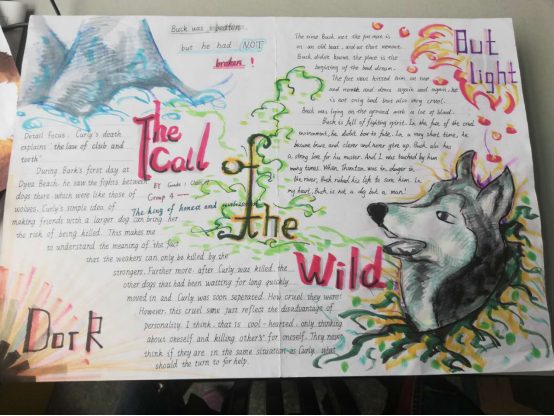 Buck was beaten
but he had NOT
broken !
Detail Focus : Curly's death
explains "the law of club and
tooth"
During Bark's first day at
Dyea Beach, he saw the fights between
dogs there which were like those of
wolves. Curly's simple idea of
making friends with a larger dog can bring her
the risk of being killed. This makes me
to understand the meaning of the fact
that the weakers can only be killed by the
strongers. Further more, after Curly was killed, the
other dogs that had been waiting for long quickly
moved in and Curly was soon seperated. How cruel they were!
However, this cruel scene just reflect the disadvantage of
personality. I think that is cool-hearted, only thinking
about oneself and killing others for oneself. They never
think if they are in the same situation as Curly, what
should the turn to for help.
Dark
The
Call
of
the
Wild
BY Grade 1 Class
Group 4
The king of
The time Buck met the fat man is
in an old boat, and at that moment,
Buck didn't know the place is the
beginning of the bad dream.
The fat man hitted him on nose
and mouth and again and again. He
is not only bad but also very cruel.
Buck was lying on the ground with a lot of blood.
Buck is full of fighting spirit. In the face of the cruel
environment, he didn't bow to fate. In a very short time, he
became brave and clever and never give up. Buck also has
a strong love for his master. And I was touched by him
many times. When Thornton was in danger in
the river, Buck risked his life to save him. In
my heart, Buck is not a dog but a man!
But
Light